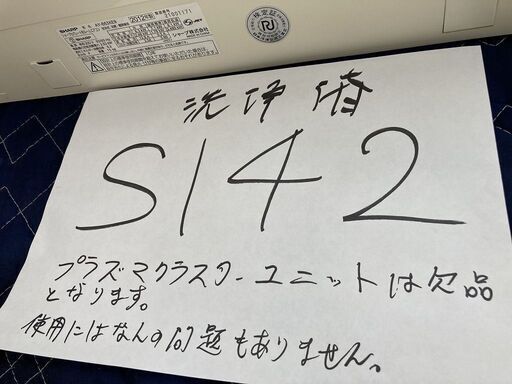 SHARP
2012年製
シャープ株式会社
洗浄済
S142
プラズマクラスターユニットは欠品
となります。
使用にはなんの問題もありません。